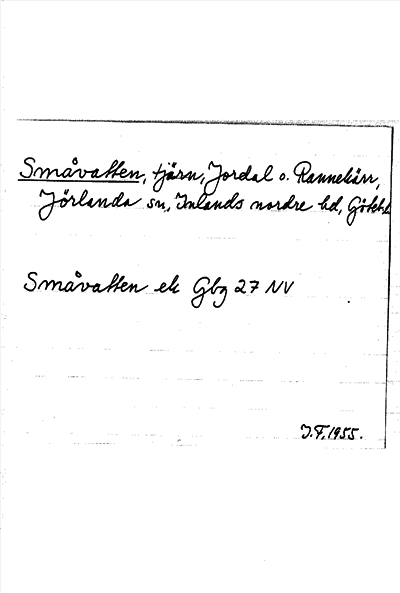 Småvatten, tjärn, Jordal o. Rannekärr,
Jörlanda sn, Inlands nordre hd, Göteb.
Småvatten ek Gbg 27 NV
J.F. 1955.